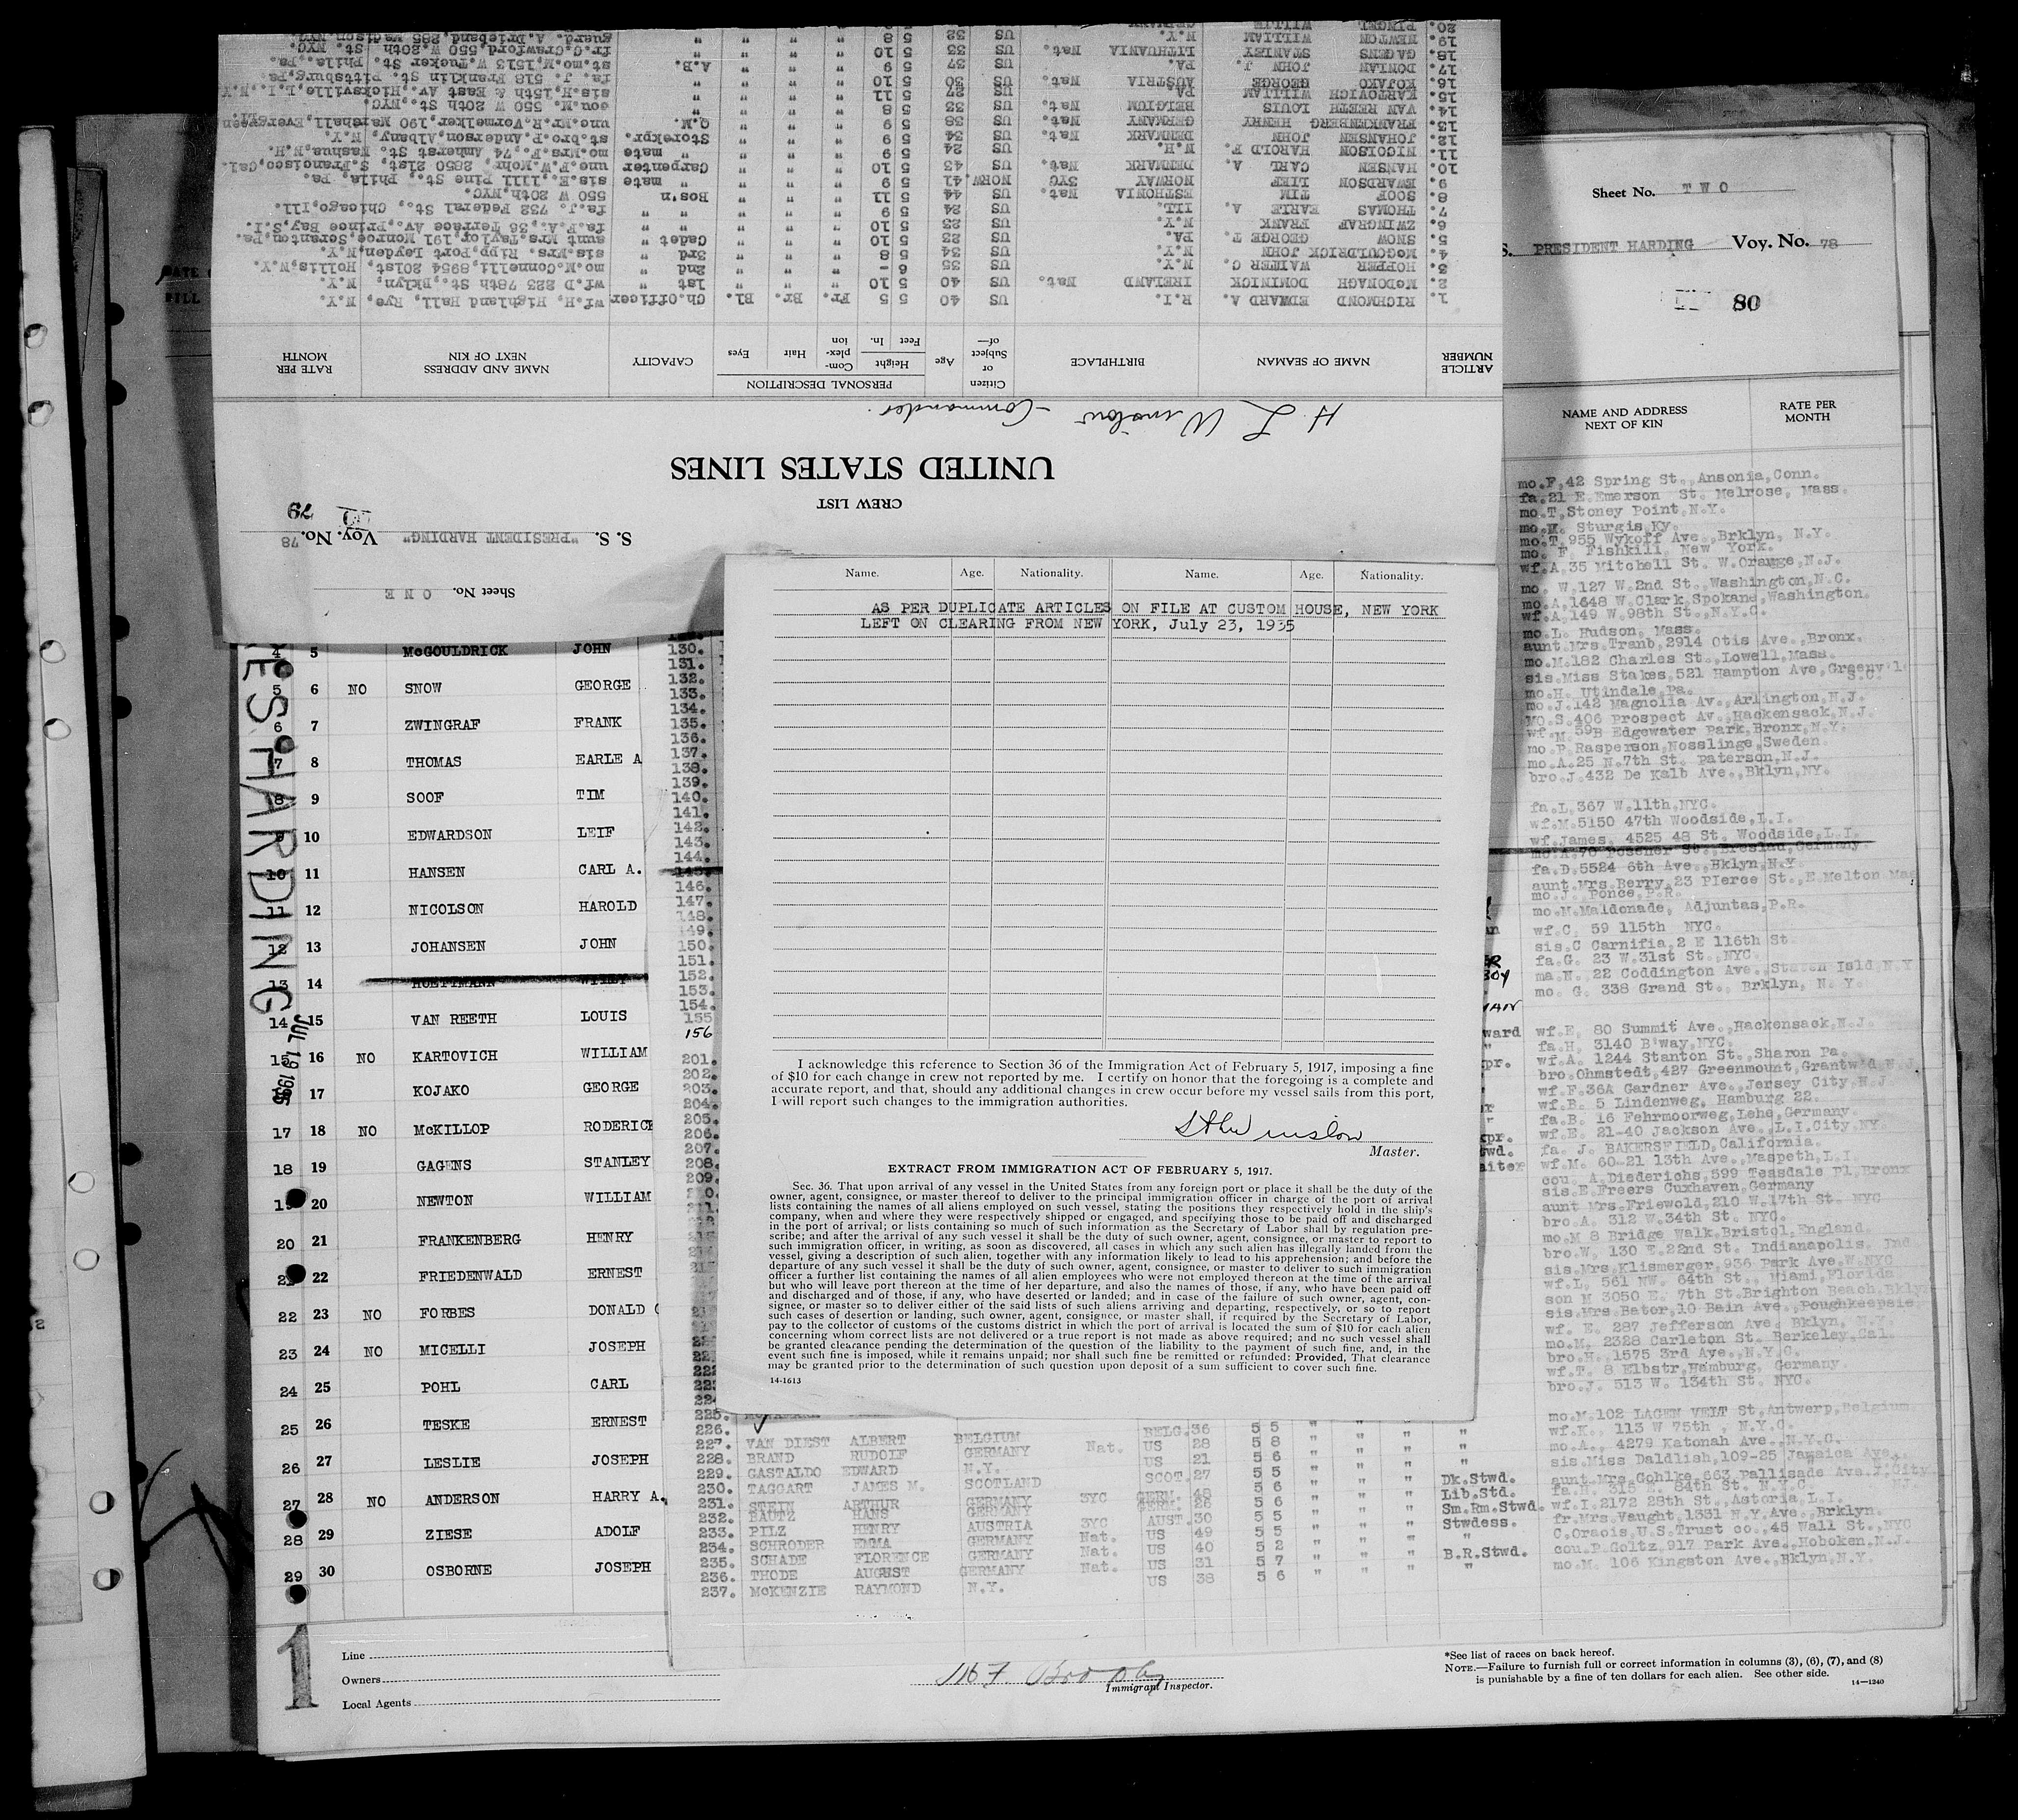 Sheet No. ONE
S. S. "PRESIDENT HARDING" Voy. No. 78
79
CREW LIST
UNITED STATES LINES
H L Winslow - Commander.
ARTICLE NUMBER NAME OF SEAMAN BIRTHPLACE Citizen or Subject of— Age PERSONAL DESCRIPTION Height Feet In. Complexion Hair Eyes CAPACITY NAME AND ADDRESS NEXT OF KIN RATE PER MONTH
1. RICHMOND EDWARD A. R.I. US 40 5 5 Fr. Br. Bl. Ch.Officer wf.H, Highland Hall, Rye, N.Y.
2. McDONAGH DOMINICK IRELAND Nat. US 40 5 10 " " " 1st " wf.D 223 78th St.,Bklyn, N.Y.
3. HOPPER WALTER C. N.Y. US 35 6 - " " " 2nd " mo.M.Connelli,8954 201st, Hollis,N.Y.
4. McGOULDRICK JOHN N.Y. US 34 5 8 " " " 3rd " sis.Mrs. Ripp,Port Leyden,N.Y.
5. SNOW GEORGE T. PA. US 23 5 10 " " " Cadet " aunt Mrs.Taylor,191 Monroe,Scranton,Pa.
6. ZWINGRAF FRANK N.Y. US 23 5 10 " " " " " fa.F.A., 36 Terrace Av.,Prince Bay,S.I.
7. THOMAS EARLE A. ILL. US 24 5 9 " " " " " fa.J. 732 Federal St., Chicago,Ill.
8. SOOF TIM ESTHONIA Nat. US 44 5 11 " " " Bos'n 550 W 20th,NYC.
9. EWARDSON LIEF NORWAY 3YC NORW. 41 5 9 " " " " mate sis.E.,1111 Pine St., Phila, Pa.
10. HANSEN CARL A. DENMARK Nat. US 43 5 10 " " " Carpenter unc.F.W.Mohr, 2850 21st, S.Francisco,Cal.
11. NICOLSON HAROLD F. N.H. US 24 5 9 " " " " mate mo.Mrs.F., 74 Amherst St. Nashua,N.H.
12. JOHANSEN JOHN DENMARK Nat. US 34 5 9 " " " Storekpr. st.bro.P.Anderson,Albany, N.Y.
13. FRANKENBERG HENRY GERMANY Nat. US 38 5 9 " " " Q.M. unc.Mr.R.Vormelker,190 Marshall,Evergreen
14. VAN REETH LOUIS BELGIUM Nat. US 33 5 8 " " " " cou.M. 550 W 20th St.,NYC.
15. KARTOVICH WILLIAM PA US 27 5 11 " " " " sis.H,15th & East Av.,Hicksville,L.I.,N.Y
16. KOJAKO GEORGE AUSTRIA Nat. US 30 5 10 " " " " fa. J. 518 Franklin St. Pittsburg,Pa.
17. DONIAN JOHN J. PA. US 37 5 9 " " " A.B. st.mo.M,1513 W.Tucker St. Phila., Pa.
18. GAGENS STANLEY LITHUANIA Nat. US 33 5 10 " " " " fr.C.Crawford,550 W.20th St. NYC.
19. NEWTON WILLIAM N.Y. US 32 5 8 " " " " guard. A.Drieband,285 Madison,NYC.
20. PINGEL WILLIE GERMANY
Sheet No. TWO
S. PRESIDENT HARDING Voy. No. 78
80
NAME AND ADDRESS NEXT OF KIN RATE PER MONTH
mo.F,42 Spring St.,Ansonia,Conn.
fa.21 E.Emerson St. Melrose, Mass.
mo.T,Stoney Point,N.Y.
mo.M. Sturgis,Ky.
mo.T,955 Wykoff Ave.,Brklyn, N.Y.
mo. F. Fishkill, New York.
wf.A,35 Mitchell St. W.Orange,N.J.
mo. W,127 W.2nd St.,Washington,N.C.
mo.A,1648 W.Clark,Spokane,Washington.
wf.A,149 W.98th St.,N.Y.C.
mo.L. Hudson, Mass.
aunt Mrs.Tranb,2914 Otis Ave.,Bronx.
mo.M.182 Charles St.,Lowell,Mass.
sis.Miss Stakes,521 Hampton Ave,Greenv'l S.C.
mo.H. Utindale,Pa.
mo.J.142 Magnolia Av.,Arlington,N.J.
MO.S.406 Prospect Av.,Hackensack,N.J.
wf.M.59B Edgewater Park,Bronx,N.Y.
mo.P.Rasperson,Nosslinge,Sweden.
mo.A.25 N.7th St. Paterson,N.J.
bro.J.432 De Kalb Ave.,Bklyn,NY.
fa.L.367 W.11th,NYC.
wf.M.5150 47th Woodside,L.I.
wf.James, 4525 48 St. Woodside,L.I.
mo.A.70 Posener St.,Breslau,Germany
fa.D.5524 6th Ave.,Bklyn,N.Y
aunt.Mrs.Berry,23 PIerce St.,E.Melton Mas
mo.J., Ponce,P.R.
mo.M.Maldonade, Adjuntas,P.R.
wf.C. 59 115th NYC.
sis.C Carnifia,2 E 116th St.
fa.G. 23 W.31st St.,NYC.
ma.N. 22 Coddington Ave.,Staten Isld,N.Y.
mo. G. 338 Grand St., Brklyn, N. Y.
wf.E. 80 Summit Ave.,Hackensack,N.J.
fa.H. 3140 B'way,NYC.
wf.A. 1244 Stanton St.,Sharon Pa.
bro.Ohmstedt,427 Greenmount,Grantw'd N.J.
wf.F.36A Gardner Ave.,Jersey City,N.J
wf.B. 5 Lindenweg, Hamburg 22.
fa.B. 16 Fehrmoorweg,Lehe,Germany.
wf.E. 21-40 Jackson Ave.,L.I.City,NY.
fa. J. BAKERSFIELD,California.
wf.M. 60-21 13th Ave.,Maspeth,L.I.
cou. A.Diederichs,599 Teasdale Pl,Bronx
sis.E.Freers Cuxhaven,Germany
aunt Mrs.Friewold,210 W.17th St. NYC
bro.A. 312 W.34th St. NYC.
mo.M 8 Bridge Walk,Bristol,England.
bro.W. 130 E.22nd St. Indianapolis. Ind
sis.Mrs.Klismerger,936 Park Ave.W.NYC
wf.L. 561 NW. 64th St., Miami,Florida
son M 3050 E. 7th St.Brighton Beach,Bkly
sis.Mrs.Bator,10 Bain Ave.,Poughkeepsie,
wf. E. 287 Jefferson Ave. Bklyn, N.Y.
mo.M. 2328 Carleton St. Berkeley,Cal.
bro.H. 1575 3rd Ave.,N.Y.C.
wf.T. 8 Elbstr,Hamburg, Germany.
bro.J. 513 W. 134th St. NYC.
mo.M.102 LAGEN VELT St,Antwerp,Belgium.
wf.K., 113 W 75th , N.Y.C.
mo.A., 4279 Katonah Ave.,N.Y.C.
sis.Miss Daldlish,109-25 Jamaica Ave.
aunt.Mrs.Gohlke,663 Pallisade Ave.J.City
fa.H. 315 E. 84th St. N.Y.C.
wf.I.2172 28th St.,Astoria,L.I.
fr.Mrs.Vaught,1331 N.Y.Ave.,Brklyn.
C.Oraois,U.S.Trust co.,45 Wall St.,NYC
cou.P.Goltz,917 Park Ave.,Hoboken,N.J.
mo.M. 106 Kingston Ave.,Bklyn,N.Y.
Name. Age. Nationality. Name. Age. Nationality.
AS PER DUPLICATE ARTICLES ON FILE AT CUSTOM HOUSE, NEW YORK
LEFT ON CLEARING FROM NEW YORK, July 23, 1935
I acknowledge this reference to Section 36 of the Immigration Act of February 5, 1917, imposing a fine
of $10 for each change in crew not reported by me. I certify on honor that the foregoing is a complete and
accurate report, and that, should any additional changes in crew occur before my vessel sails from this port,
I will report such changes to the immigration authorities.
Winslow
Master.
EXTRACT FROM IMMIGRATION ACT OF FEBRUARY 5, 1917.
Sec. 36. That upon arrival of any vessel in the United States from any foreign port or place it shall be the duty of the
owner, agent, consignee, or master thereof to deliver to the principal immigration officer in charge of the port of arrival
lists containing the names of all aliens employed on such vessel, stating the positions they respectively hold in the ship's
company, when and where they were respectively shipped or engaged, and specifying those to be paid off and discharged
in the port of arrival; or lists containing so much of such information as the Secretary of Labor shall by regulation pre-
scribe; and after the arrival of any such vessel it shall be the duty of such owner, agent, consignee, or master to report to
such immigration officer, in writing, as soon as discovered, all cases in which any such alien has illegally landed from the
vessel, giving a description of such alien, together with any information likely to lead to his apprehension; and before the
departure of any such vessel it shall be the duty of such owner, agent, consignee, or master to deliver to such immigration
officer a further list containing the names of all alien employees who were not employed thereon at the time of the arrival
but who will leave port thereon at the time of her departure, and also the names of those, if any, who have been paid off
and discharged and of those, if any, who have deserted or landed; and in case of the failure of such owner, agent, con-
signee, or master so to deliver either of the said lists of such aliens arriving and departing, respectively, or so to report
such cases of desertion or landing, such owner, agent, consignee, or master, shall, if required by the Secretary of Labor,
pay to the collector of customs of the customs district in which the port of arrival is located the sum of $10 for each alien
concerning whom correct lists are not delivered or a true report is not made as above required; and no such vessel shall
be granted clearance pending the determination of the question of the liability to the payment of such fine, and, in the
event such fine is imposed, while it remains unpaid; nor shall such fine be remitted or refunded: Provided, That clearance
may be granted prior to the determination of such question upon deposit of a sum sufficient to cover such fine.
14-1613
ES HARDING
JUL 19 1935
4 5 McGOULDRICK JOHN
5 6 NO SNOW GEORGE
6 7 ZWINGRAF FRANK
7 8 THOMAS EARLE A
8 9 SOOF TIM
9 10 EDWARDSON LEIF
10 11 HANSEN CARL A.
11 12 NICOLSON HAROLD
12 13 JOHANSEN JOHN
13 14
14 15 VAN REETH LOUIS
15 16 NO KARTOVICH WILLIAM
17 KOJAKO GEORGE
17 18 NO McKILLOP RODERICK
18 19 GAGENS STANLEY
19 20 NEWTON WILLIAM
20 21 FRANKENBERG HENRY
21 22 FRIEDENWALD ERNEST
22 23 NO FORBES DONALD
23 24 NO MICELLI JOSEPH
24 25 POHL CARL
25 26 TESKE ERNEST
26 27 LESLIE JOSEPH
27 28 NO ANDERSON HARRY A.
28 29 ZIESE ADOLF
29 30 OSBORNE JOSEPH
130.
131.
132.
133.
134.
135.
136.
137.
138.
139.
140.
141.
142.
143.
144.
145.
146.
147.
148.
149.
150.
151.
152.
153.
154.
155
156
201.
202.
203.
204.
205.
206.
207.
208.
209.
225.
226. BELG. 36 5 5 " " " "
227. VAN DIEST ALBERT BELGIUM Nat. US 28 5 8 " " " "
228. BRAND RUDOLF GERMANY US 21 5 6 " " " "
229. GASTALDO EDWARD N.Y. SCOT. 27 5 5 " " " Dk.Stwd.
230. TAGGART JAMES M. SCOTLAND GERM. 48 5 6 " " " Lib.Std.
231. STEIN ARTHUR GERMANY 3YC GERM. 26 5 6 " " " Sm.Rm.Stwd.
232. BAUTZ HANS GERMANY 3YC AUST. 30 5 5 " " " Stwdess.
233. PILZ HENRY AUSTRIA Nat. US 49 5 5 " " " "
234. SCHRODER EMMA GERMANY Nat. US 40 5 2 " " " B.R.Stwd.
235. SCHADE FLORENCE GERMANY Nat. US 31 5 7 " " " "
236. THODE AUGUST GERMANY US 38 5 6 " " "
237. McKENZIE RAYMOND N.Y.
1
Line
Owners
Local Agents
Immigrant Inspector.
*See list of races on back hereof.
NOTE.—Failure to furnish full or correct information in columns (3), (6), (7), and (8)
is punishable by a fine of ten dollars for each alien. See other side.
14—1240